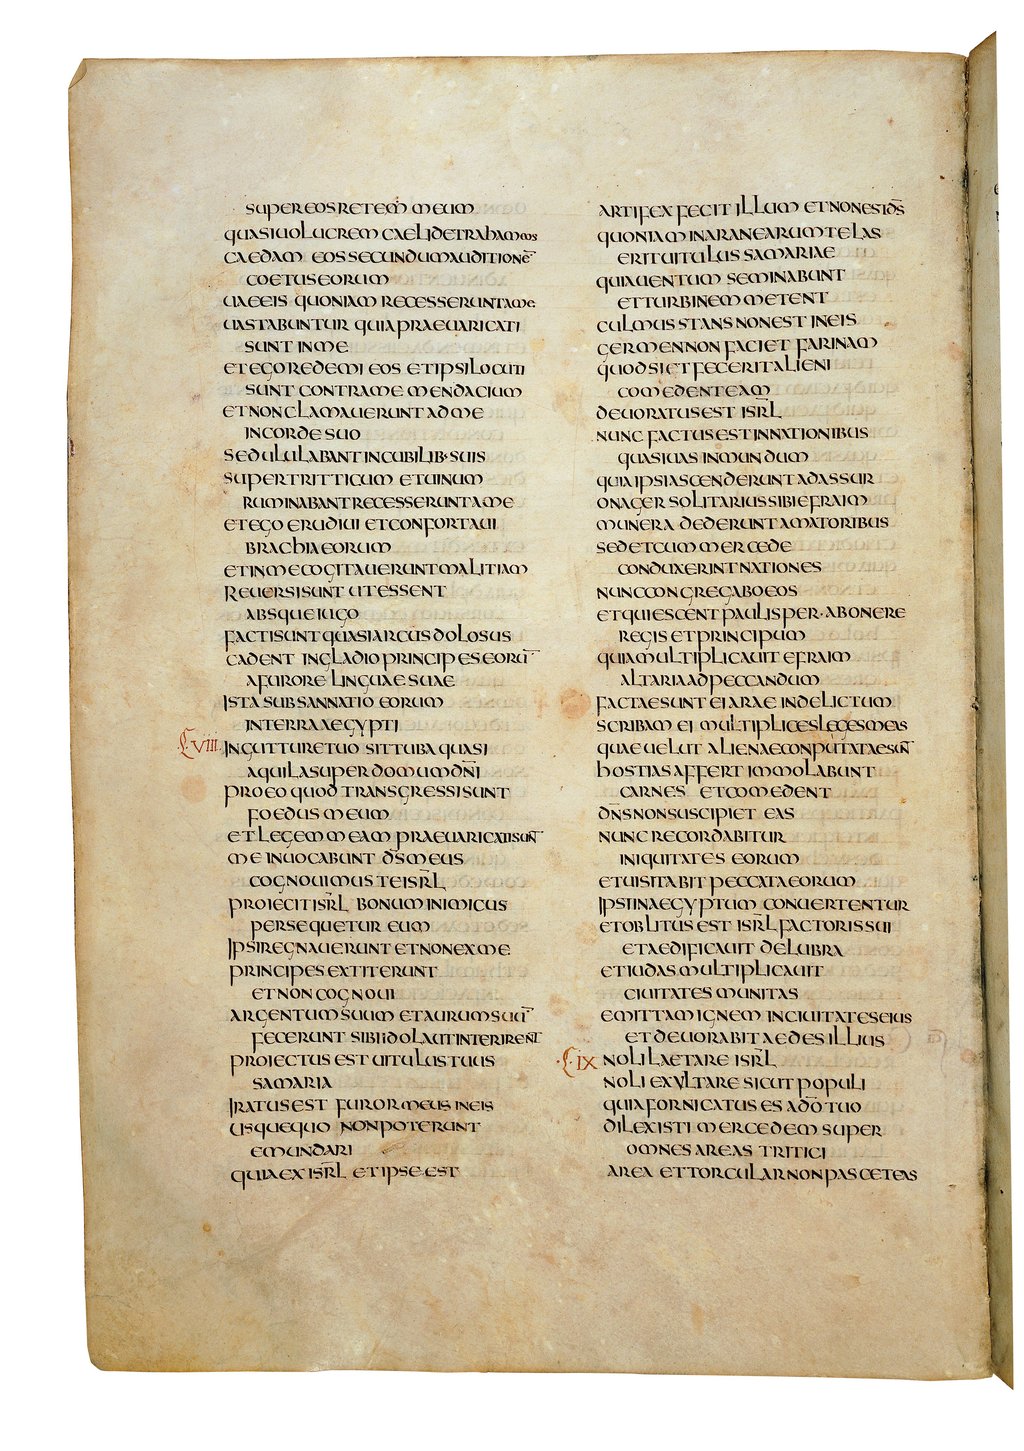 SUPER EOS RETEM̄ MEUM
QUASI UOLUCREM CAELI DETRAHAM EOS
CAEDAM EOS SECUNDUM AUDITIONĒ
COETUS EORUM
UAE EIS QUONIAM RECESSERUNT A ME
UASTABUNTUR QUIA PRAEUARICATI
SUNT IN ME
ET EGO REDEMI EOS ET IPSI LOCUTI
SUNT CONTRA ME MENDACIUM
ET NON CLAMAUERUNT AD ME
IN CORDE SUO
SED ULULABANT IN CUBILIB· SUIS
SUPER TRITICUM ET UINUM
RUMINABANT RECESSERUNT A ME
ET EGO ERUDIUI ET CONFORTAUI
BRACHIA EORUM
ET IN ME COGITAUERUNT MALITIAM
REUERSI SUNT UT ESSENT
ABSQUE IUGO
FACTI SUNT QUASI ARCUS DOLOSUS
CADENT IN GLADIO PRINCIPES EORŪ
A FURORE LINGUAE SUAE
ISTA SUBSANNATIO EORUM
IN TERRA AEGYPTI
VIII. IN GUTTURE TUO SIT TUBA QUASI
AQUILA SUPER DOMUM DN̄I
PRO EO QUOD TRANSGRESSI SUNT
FOEDUS MEUM
ET LEGEM MEAM PRAEUARICATI SUNT̄
ME INUOCABUNT D̄S MEUS
COGNOUIMUS TE ISR̄L
PROIECIT ISR̄L BONUM INIMICUS
PERSEQUETUR EUM
IPSI REGNAUERUNT ET NON EX ME
PRINCIPES EXTITERUNT
ET NON COGNOUI
ARGENTUM SUUM ET AURUM SUŪ
FECERUNT SIBI IDOLA UT INTERIRENT̄
PROIECTUS EST UITULUS TUUS
SAMARIA
IRATUS EST FUROR MEUS IN EIS
USQUEQUO NON POTERUNT
EMUNDARI
QUIA EX ISR̄L ET IPSE EST
ARTIFEX FECIT ILLUM ET NON EST D̄S
QUONIAM IN ARANEARUM TELAS
ERIT UITULUS SAMARIAE
QUIA UENTUM SEMINABUNT
ET TURBINEM METENT
CULMUS STANS NON EST IN EIS
GERMEN NON FACIET FARINAM
QUOD SI ET FECERIT ALIENI
COMEDENT EAM
DEUORATUS EST ISR̄L
NUNC FACTUS EST IN NATIONIBUS
QUASI UAS INMUNDUM
QUIA IPSI ASCENDERUNT AD ASSUR
ONAGER SOLITARIUS SIBI EFRAIM
MUNERA DEDERUNT AMATORIBUS
SED ET CUM MERCEDE
CONDUXERINT NATIONES
NUNC CONGREGABO EOS
ET QUIESCENT PAULISPER · AB ONERE
REGIS ET PRINCIPUM
QUIA MULTIPLICAUIT EFRAIM
ALTARIA AD PECCANDUM
FACTAE SUNT EI ARAE IN DELICTUM
SCRIBAM EI MULTIPLICES LEGES MEAS
QUAE UELUT ALIENAE CONPUTATAE SUNT̄
HOSTIAS AFFERT IMMOLABUNT
CARNES ET COMEDENT
DN̄S NON SUSCIPIET EAS
NUNC RECORDABITUR
INIQUITATES EORUM
ET UISITABIT PECCATA EORUM
IPSI IN AEGYPTUM CONUERTENTUR
ET OBLITUS EST ISR̄L FACTORIS SUI
ET AEDIFICAUIT DELUBRA
ET IUDAS MULTIPLICAUIT
CIUITATES MUNITAS
EMITTAM IGNEM IN CIUITATES EIUS
ET DEUORABIT AEDES ILLIUS
IX NOLI LAETARE ISR̄L
NOLI EXULTARE SICUT POPULI
QUIA FORNICATUS ES A D̄O TUO
DILEXISTI MERCEDEM SUPER
OMNES AREAS TRITICI
AREA ET TORCULAR NON PASCET EAS